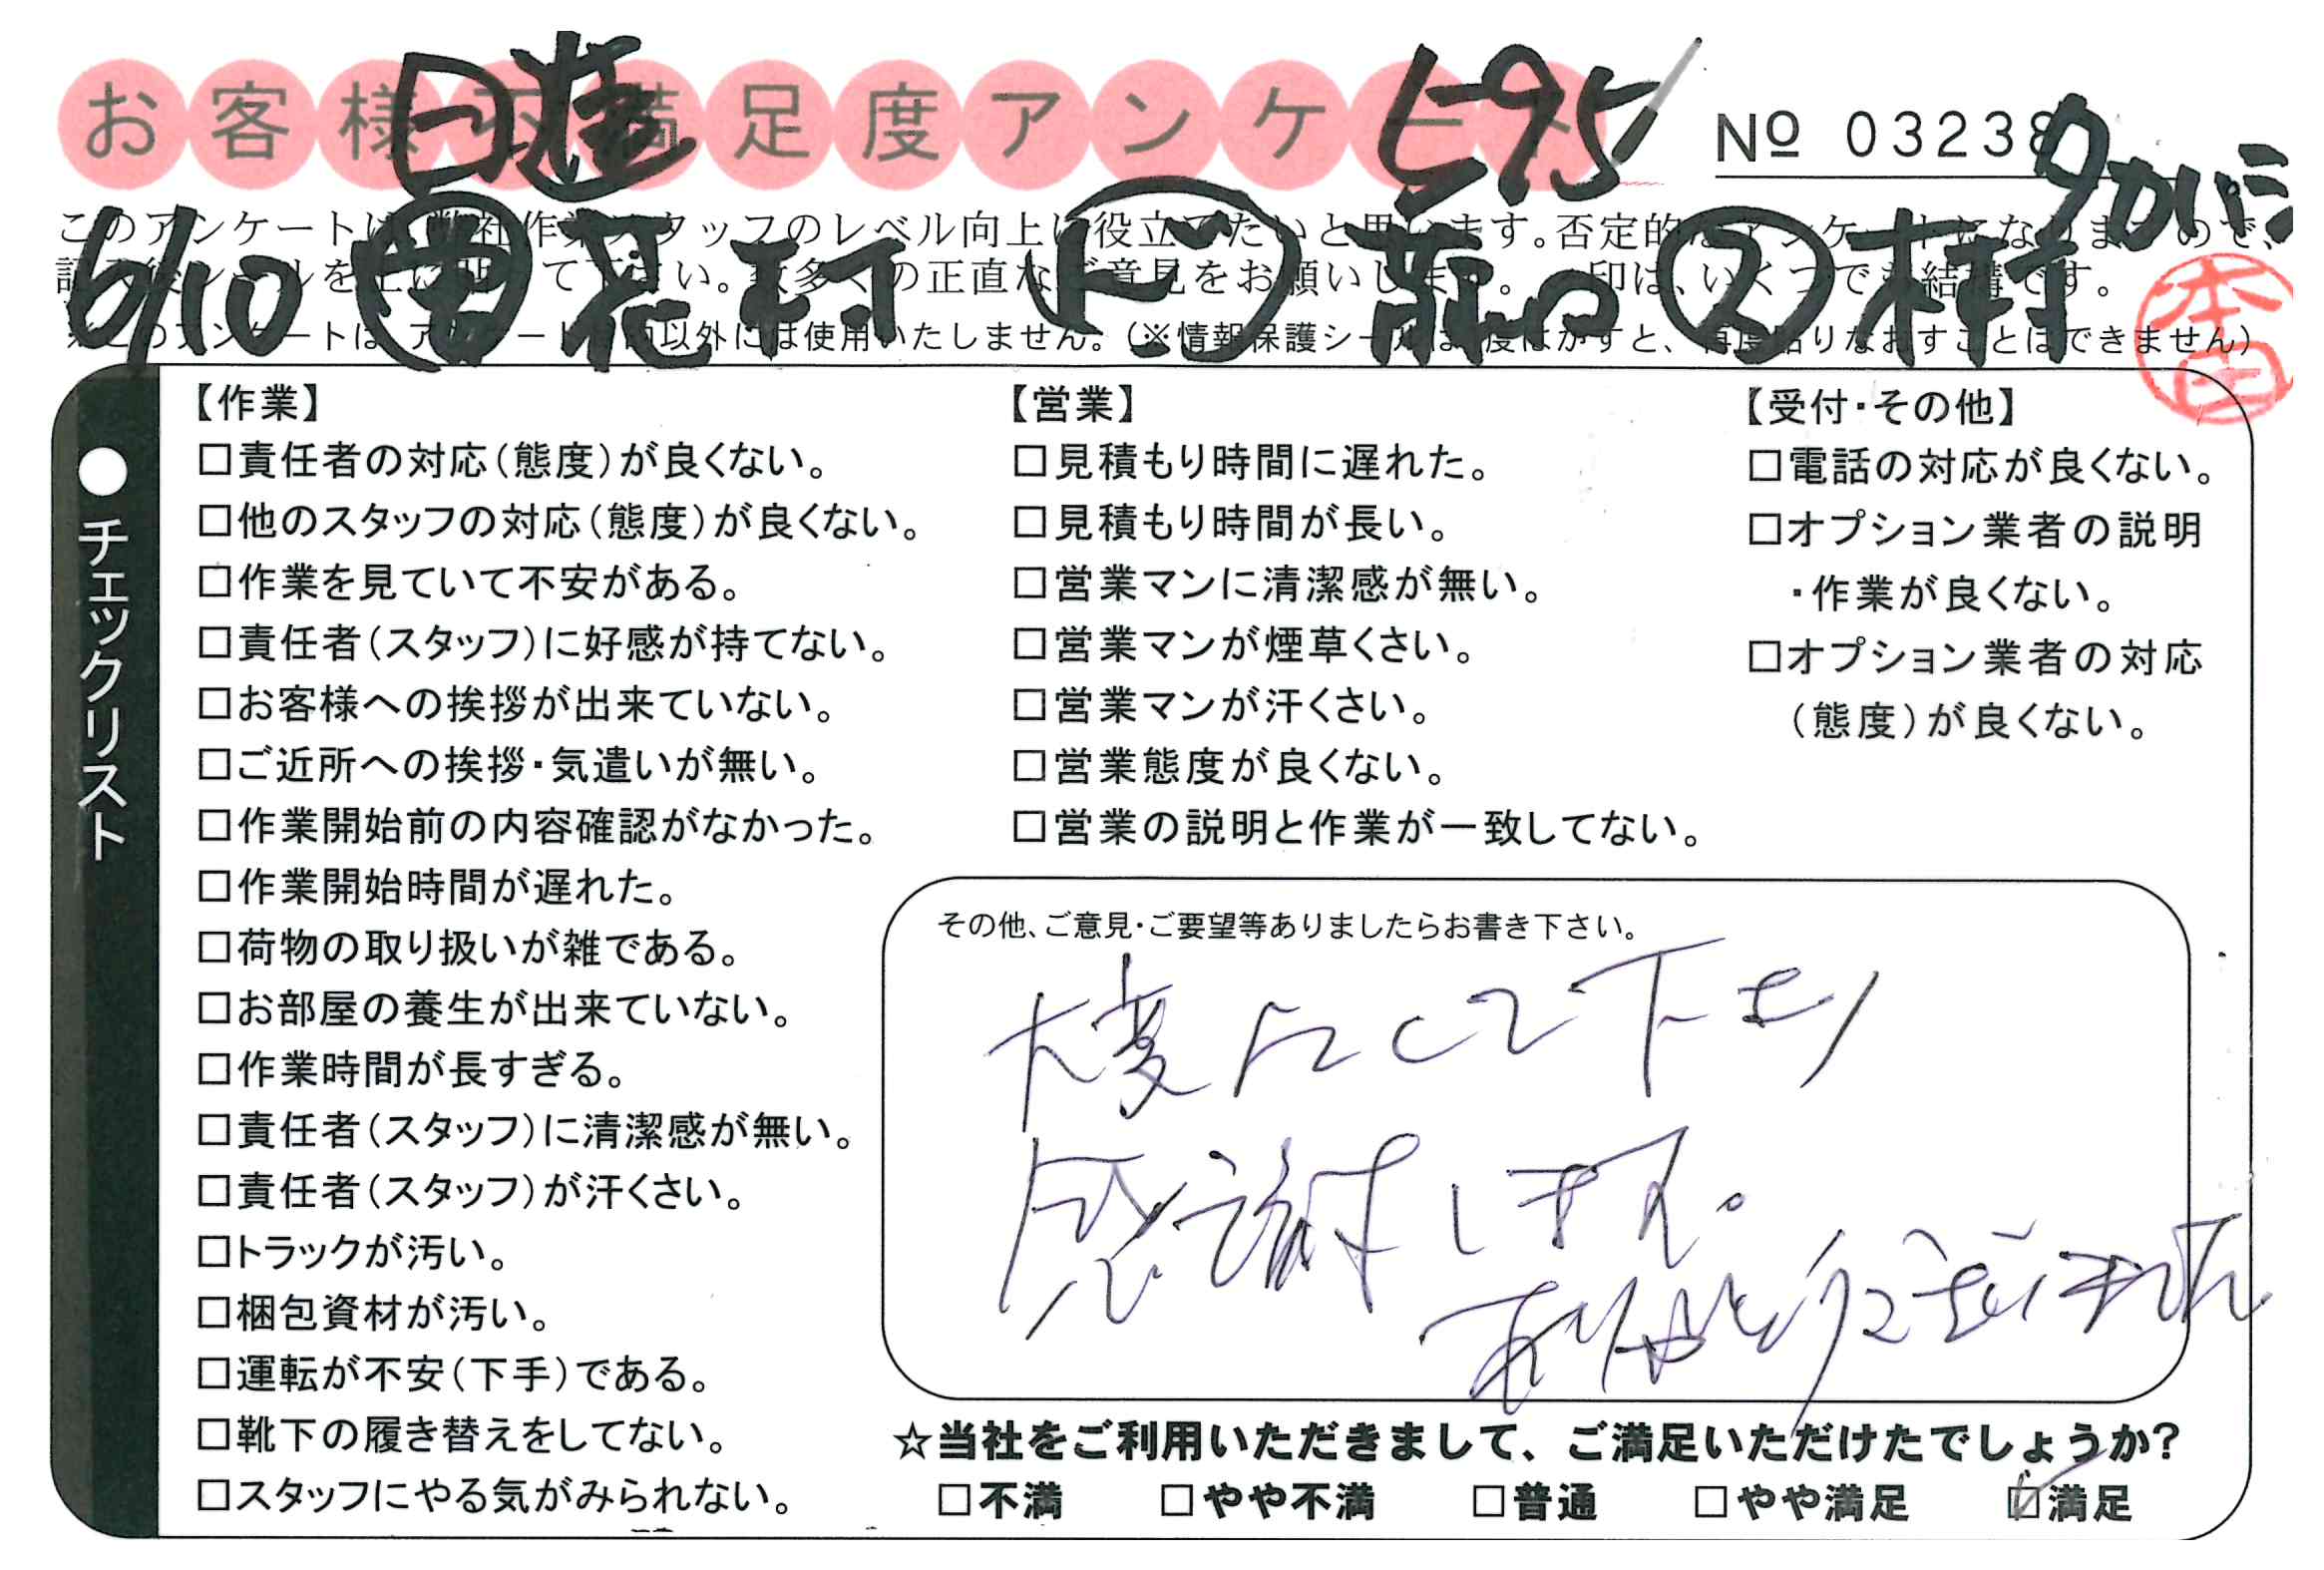 お客様不満足度アンケート
№ 03238
このアンケートは、弊社作業スタッフのレベル向上に役立てたいと思います。否定的なアンケートになりますので、
シールを 下さい。数多くの正直なご意見をお願いします。 印は、いくつでも結構です。
※このアンケートは、アンケート 以外には使用いたしません。(※情報保護シールは1度はがすと、再度貼りなおすことはできません)
6/10 花村 ド 2 村
本田
●チェックリスト
【作業】
□責任者の対応(態度)が良くない。
□他のスタッフの対応(態度)が良くない。
□作業を見ていて不安がある。
□責任者(スタッフ)に好感が持てない。
□お客様への挨拶が出来ていない。
□ご近所への挨拶・気遣いが無い。
□作業開始前の内容確認がなかった。
□作業開始時間が遅れた。
□荷物の取り扱いが雑である。
□お部屋の養生が出来ていない。
□作業時間が長すぎる。
□責任者(スタッフ)に清潔感が無い。
□責任者(スタッフ)が汗くさい。
□トラックが汚い。
□梱包資材が汚い。
□運転が不安(下手)である。
□靴下の履き替えをしてない。
□スタッフにやる気がみられない。
【営業】
□見積もり時間に遅れた。
□見積もり時間が長い。
□営業マンに清潔感が無い。
□営業マンが煙草くさい。
□営業マンが汗くさい。
□営業態度が良くない。
□営業の説明と作業が一致してない。
【受付・その他】
□電話の対応が良くない。
□オプション業者の説明
・作業が良くない。
□オプション業者の対応
(態度)が良くない。
その他、ご意見・ご要望等ありましたらお書き下さい。
して下さり
感謝します。
ありがとうございました
☆当社をご利用いただきまして、ご満足いただけたでしょうか?
□不満 □やや不満 □普通 □やや満足 ☑満足